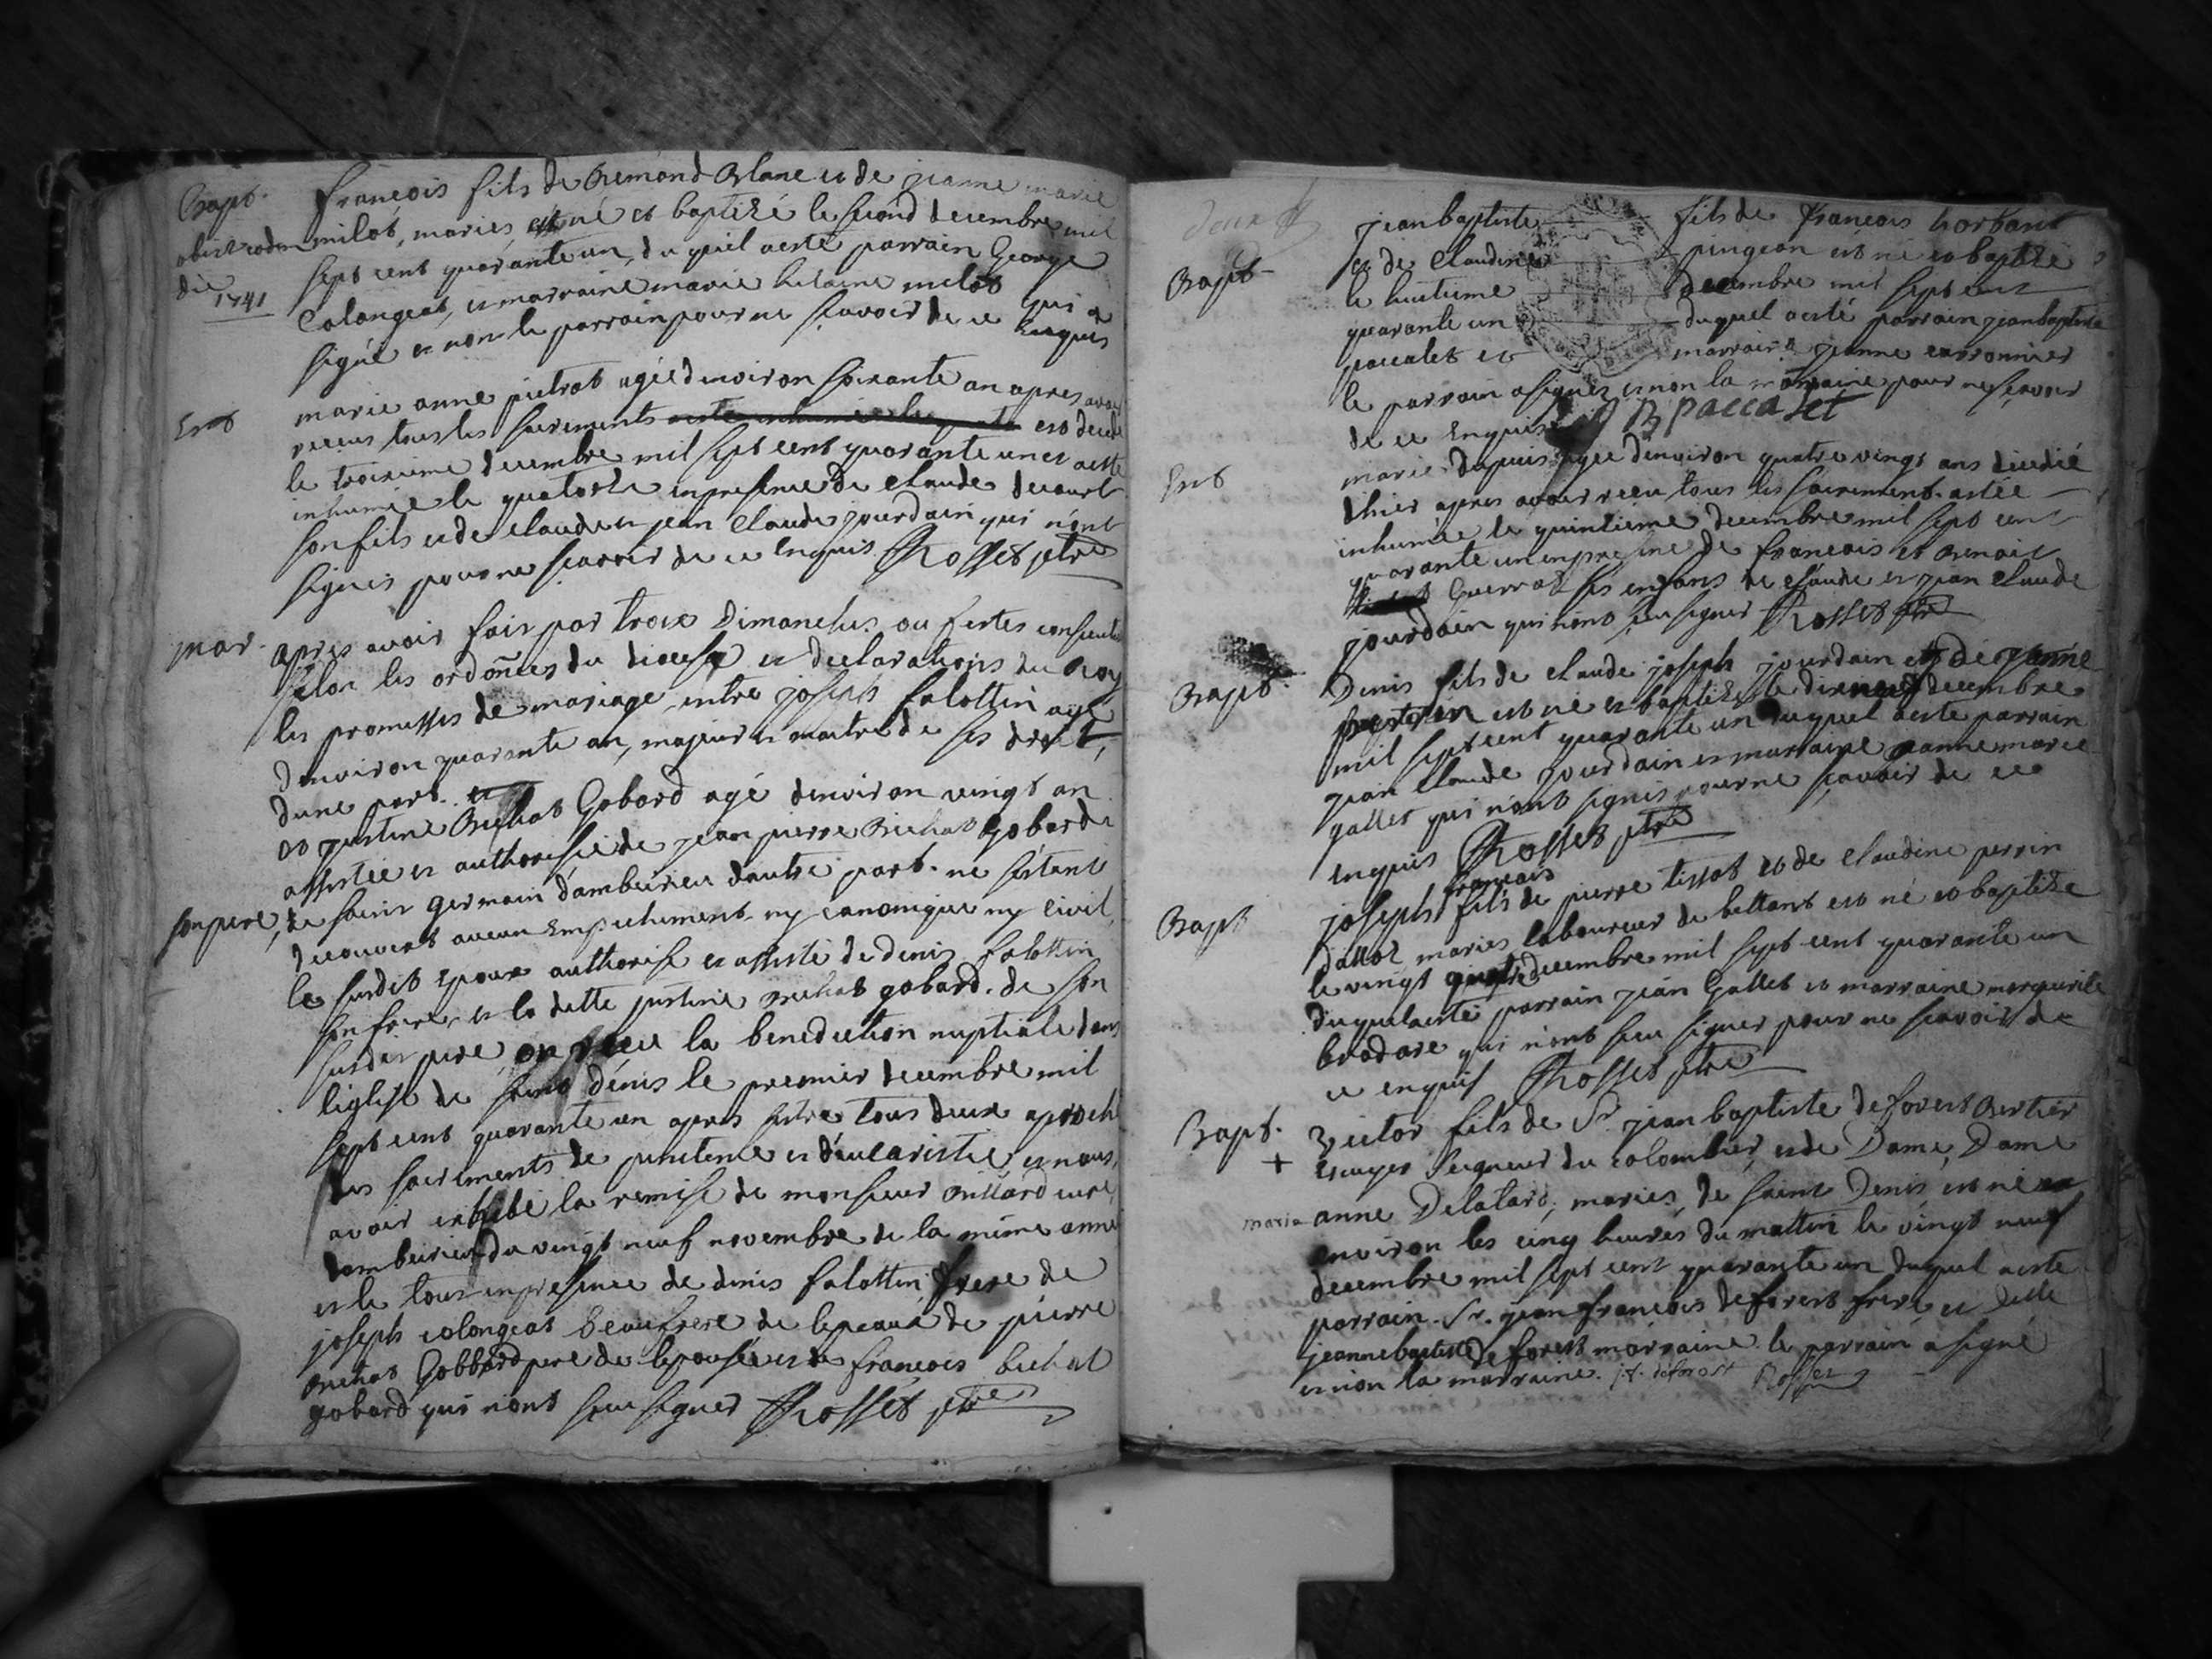 Bapt. françois fils de Remond Blanc et de jeanne marie
obiit eadem milot, mariés, est né et baptizé le second decembre mil
die sept cent quarante un, du quel a esté parrain George
1741 Colongeat, et marraine marie helaine milot qui a
signé et non le parrain pour ne sçavoir de ce enquis
Ent marie anne pietrat agée denviron soixante an apres avoir
receus tous les sacrements est decedé
le troisieme decembre mil sept cent quarante un et a esté
inhumée le quatorze en presence de Claude decourt
son fils et de claude et jean Claude jourdain qui n'ont
signés pour ne scavoir de ce enquis Rosset ptre
mar. apres avoir fait par trois Dimanches ou festes consecutives
selon les ordoñces du diocese et declarations du Roy
les promesses de mariage entre joseph falottin agé
denviron quarante an, majeur et maitre de ses droits,
dune part et
et justine Bichat Gobard agé denviron vingt an
assistée et authorisée de jean pierre Bichat Gobard
son pere, de saint germain dambeirieu dautre part. ne s'etant
decouvert aucun empechement ny canonique ny civil,
le susdit epoux authorisé et assisté de denis falottin
son frere, et la ditte justine Bichat gobard de son
susdit pere, on reçu la benediction nuptiale dans
l'eglise de saint dénis le premier decembre mil
sept cent quarante un apres s'etre tous deux aproché
des sacrements de penitence et d'eucaristie, et nous
avoir exhibé la remise de monsieur Millard curé
dambeirieu du vingt neuf novembre de la même anné
et le tout en presence de denis falottin frere de
joseph colongeat beaufrere de lepoux de pierre
Bichat Gobbard pere de lepouse et de françois bichat
gobard qui n'ont sceu signer Rosset ptre
jean baptiste fils de françois horbant
Bapt et de Claudine pingeon est né et baptizé
le huitieme decembre mil sept cent
quarante un duquel a esté parrain jean baptiste
paccalet et marraine jeanne carronnier
le parrain a signé et non la marraine pour ne sçavoir
de ce enquis JB paccalet
Ent marie dupuis agée denviron quatre vingt ans décédé
dhier apres avoir receu tous les sacrement a etée
inhumée le quinzieme decembre mil sept cent
quarante un en presence de françois et Benoit
Guerrat ses enfans de claude et jean claude
jourdain qui n'ont sceu signer Rosset ptre
Bapt. Denis fils de claude joseph jourdain et de jeanne
est né et baptizé le dixneuf decembre
mil sept cent quarante un duquel a esté parrain
jean Claude jourdain et marraine jeanne marie
gallet qui n'ont signés pour ne sçavoir de ce
enquis Rosset ptre
françois
Bapt joseph fils de pierre tissot et de claudine perrin
dalloz mariés laboureur de bettant est né et baptizé
le vingt quatre decembre mil sept cent quarante un
duquel a esté parrain jean Gallet et marraine marguerite
brodare qui n'ont sceu signer pour ne scavoir de
ce enquis Rosset ptre
Bapt. Victor fils de Sr. jean baptiste deforest Bertier
+ Ecuyer Seigneur du colombier, et de Dame, Dame
marie anne Delatard, mariés, de saint Denis est né
environ les cinq heures du mattin le vingt neuf
decembre mil sept cent quarante un duquel a esté
parrain Sr. jean françois deforest frere, et delle
jeanne baptiste de forest marraine le parrain a signé
et non la marraine. j.f. deforest Rosset